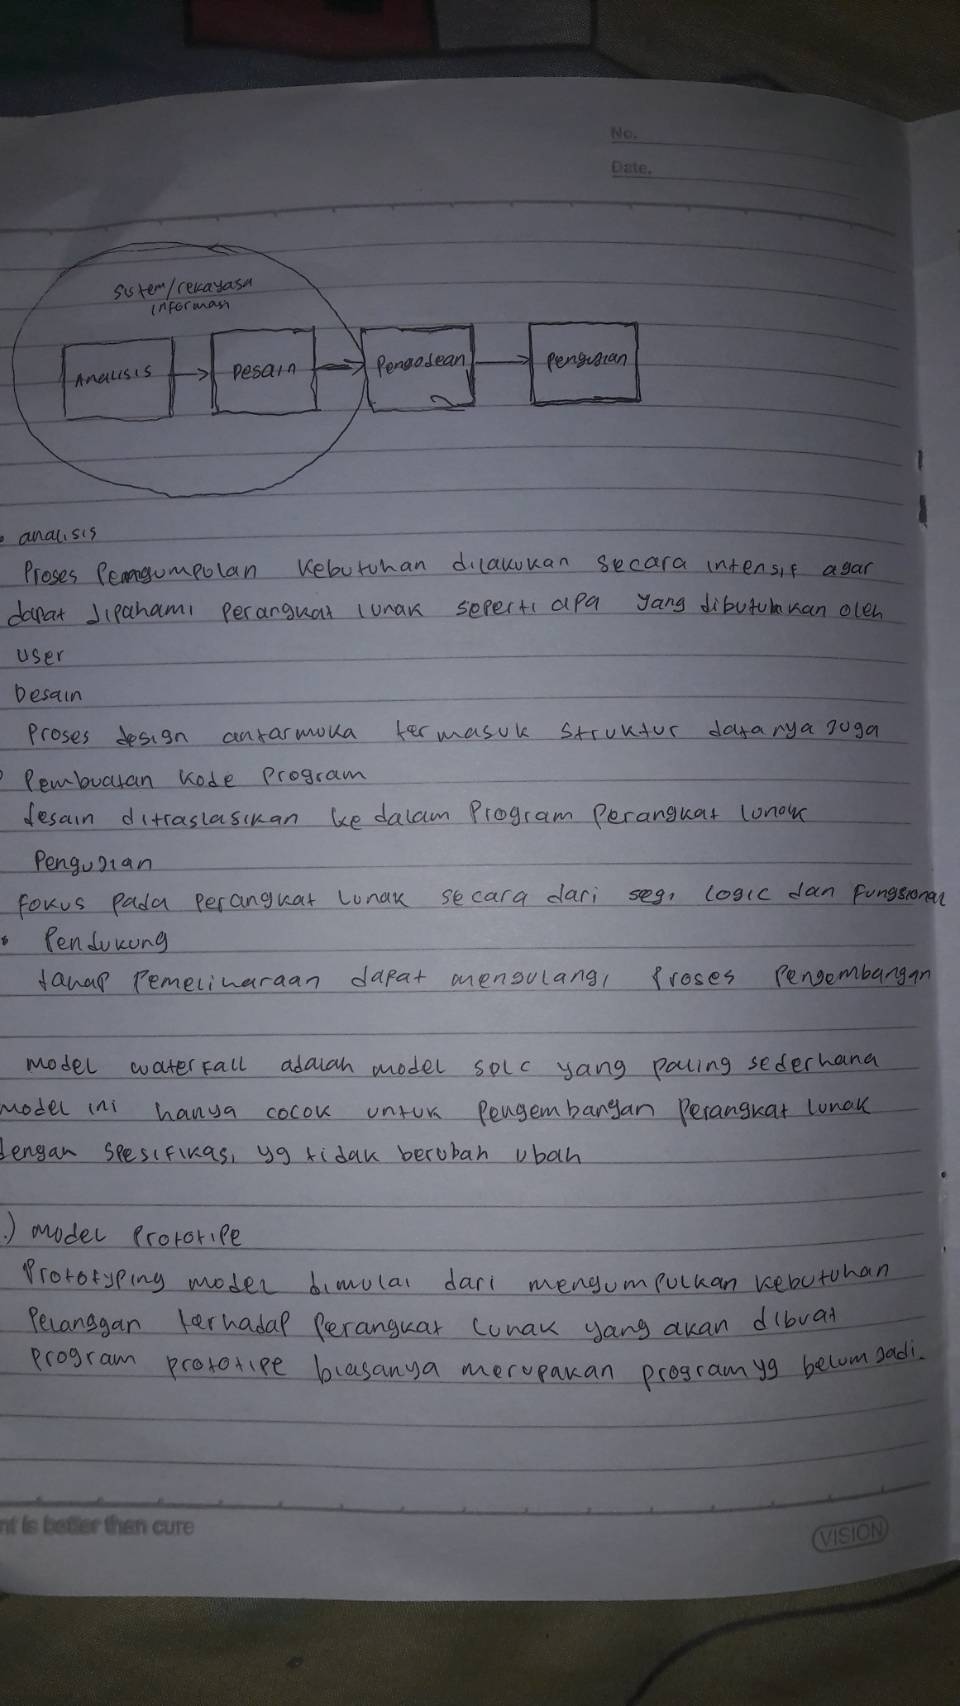 No.
Date.
Sistem/rekayasa
informasi
Analisis
Desain
Pengodean
Pengujian
• analisis
Proses Pengumpulan kebutuhan dilakukan secara intensif agar
dapat dipahami perangkat lunak seperti apa yang dibutuhkan oleh
user
Desain
Proses design antarmuka termasuk struktur datanya juga
Pembuatan kode Program
desain ditraslasikan kedalam Program Perangkat lunak
Pengujian
fokus pada perangkat lunak secara dari segi logic dan fungsional
• Pendukung
tahap Pemeliharaan dapat mengulangi Proses Pengembangan
model waterfall adalah model SDLC yang paling sederhana
model ini hanya cocok untuk Pengembangan Perangkat lunak
dengan spesifikasi yg tidak berubah ubah
.) model Prototipe
Prototyping model dimulai dari mengumpulkan kebutuhan
Pelanggan terhadap Perangkat lunak yang akan dibuat
program prototipe biasanya merupakan program yg belum jadi.
nt is better than cure
VISION